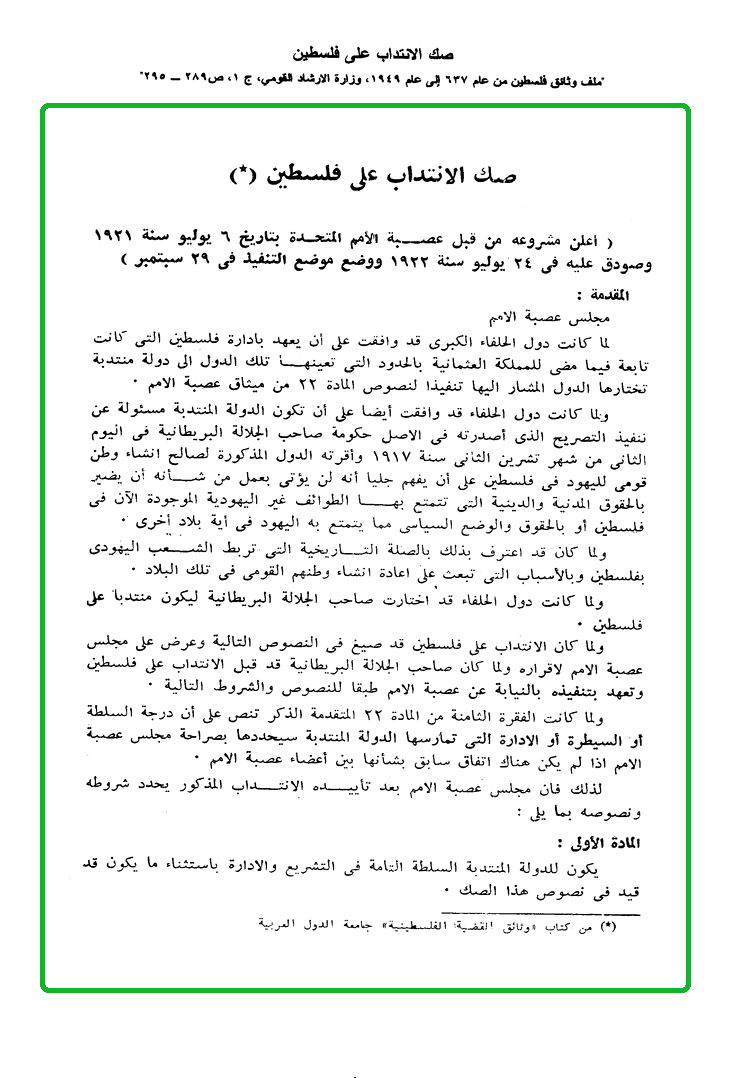 صك الانتداب على فلسطين
"ملف وثائق فلسطين من عام ٦٣٧ إلى عام ١٩٤٩، وزارة الارشاد القومي، ج ١، ص ٢٨٩ — ٢٩٥"
صك الانتداب على فلسطين (*)
( أعلن مشروعه من قبل عصبة الأمم المتحدة بتاريخ ٦ يوليو سنة ١٩٢١
وصودق عليه فى ٢٤ يوليو سنة ١٩٢٢ ووضع موضع التنفيذ فى ٢٩ سبتمبر )
المقدمة :
مجلس عصبة الامم
لما كانت دول الحلفاء الكبرى قد وافقت على أن يعهد بادارة فلسطين التى كانت
تابعة فيما مضى للمملكة العثمانية بالحدود التى تعينها تلك الدول الى دولة منتدبة
تختارها الدول المشار اليها تنفيذا لنصوص المادة ٢٢ من ميثاق عصبة الامم ٠
ولما كانت دول الحلفاء قد وافقت أيضا على أن تكون الدولة المنتدبة مسئولة عن
تنفيذ التصريح الذى أصدرته فى الاصل حكومة صاحب الجلالة البريطانية فى اليوم
الثانى من شهر تشرين الثانى سنة ١٩١٧ وأقرته الدول المذكورة لصالح انشاء وطن
قومى لليهود فى فلسطين على أن يفهم جليا أنه لن يؤتى بعمل من شأنه أن يضير
بالحقوق المدنية والدينية التى تتمتع بها الطوائف غير اليهودية الموجودة الآن فى
فلسطين أو بالحقوق والوضع السياسى مما يتمتع به اليهود فى أية بلاد أخرى ٠
ولما كان قد اعترف بذلك بالصلة التاريخية التى تربط الشعب اليهودى
بفلسطين وبالأسباب التى تبعث على اعادة انشاء وطنهم القومى فى تلك البلاد ٠
ولما كانت دول الحلفاء قد اختارت صاحب الجلالة البريطانية ليكون منتدبا على
فلسطين ٠
ولما كان الانتداب على فلسطين قد صيغ فى النصوص التالية وعرض على مجلس
عصبة الامم لاقراره ولما كان صاحب الجلالة البريطانية قد قبل الانتداب على فلسطين
وتعهد بتنفيذه بالنيابة عن عصبة الامم طبقا للنصوص والشروط التالية ٠
ولما كانت الفقرة الثامنة من المادة ٢٢ المتقدمة الذكر تنص على أن درجة السلطة
أو السيطرة أو الادارة التى تمارسها الدولة المنتدبة سيحددها بصراحة مجلس عصبة
الامم اذا لم يكن هناك اتفاق سابق بشأنها بين أعضاء عصبة الامم ٠
لذلك فان مجلس عصبة الامم بعد تأييده الانتداب المذكور يحدد شروطه
ونصوصه بما يلى :
المادة الأولى :
يكون للدولة المنتدبة السلطة التامة فى التشريع والادارة باستثناء ما يكون قد
قيد فى نصوص هذا الصك ٠
(*) من كتاب «وثائق القضية الفلسطينية» جامعة الدول العربية